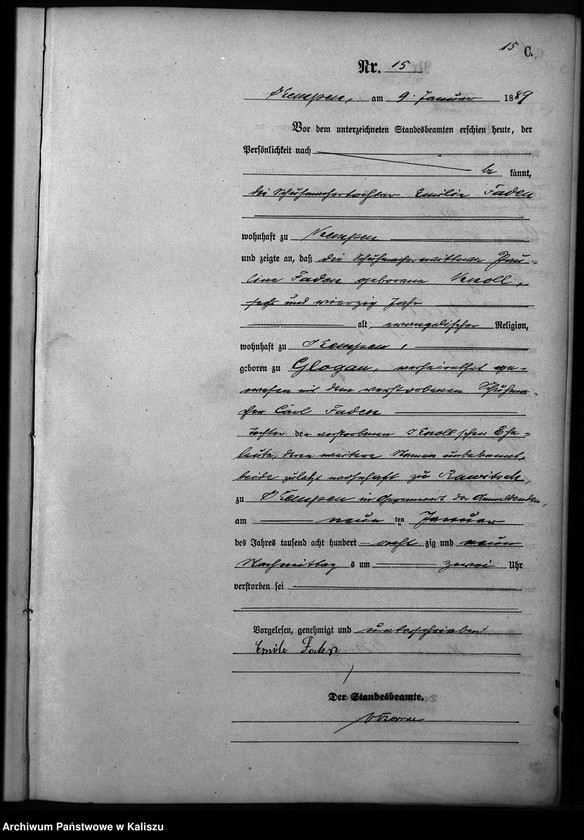 15 C.
Nr. 15
Kempen, am 9. Januar 1889
Vor dem unterzeichneten Standesbeamten erschien heute, der
Persönlichkeit nach
be kannt,
die Schuhmachertochter Emilie Faden
wohnhaft zu Kempen
und zeigte an, daß die Schuhmacherwittwe Pau-
line Faden geborene Knoll,
sechs und vierzig Jahr
alt, evangelischer Religion,
wohnhaft zu Kempen,
geboren zu Glogau, verheirathet ge-
wesen mit dem verstorbenen Schuhma-
cher Carl Faden
Tochter der verstorbenen Knoll'schen Ehe-
leute, deren weitere Namen unbekannt,
beide zuletzt wohnhaft zu Rawitsch,
zu Kempen in Gegenwart der Anmeldenden,
am neun ten Januar
des Jahres tausend acht hundert acht zig und neun
Nachmittag s um zwei Uhr
verstorben sei
Vorgelesen, genehmigt und unterschrieben
Emilie Faden
Der Standesbeamte.
Archiwum Państwowe w Kaliszu